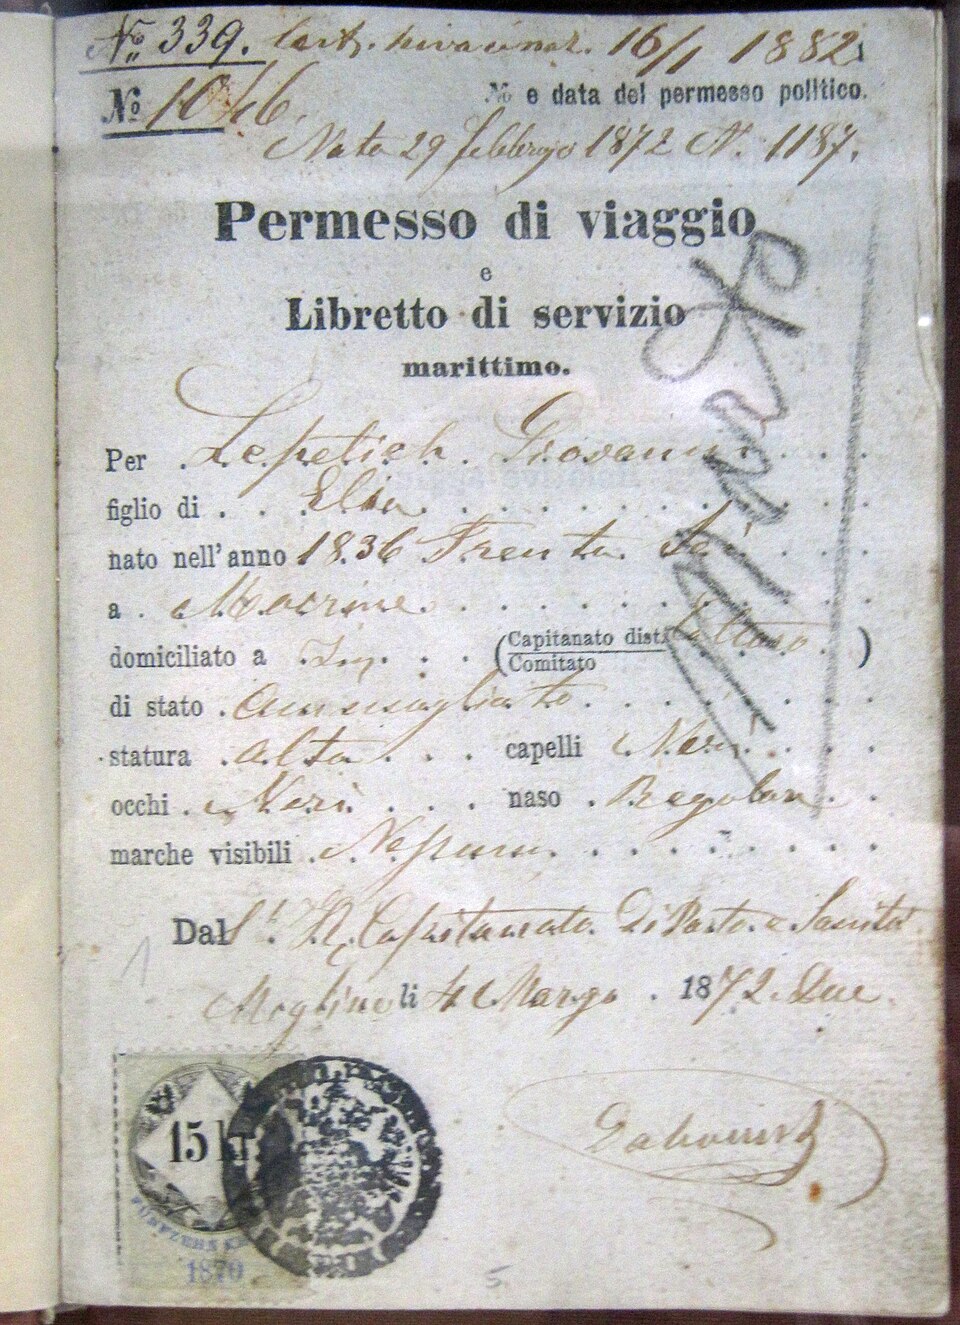 No 339. 16/1 1882
No 1046. No e data del permesso politico.
Nota 29 febbrajo 1872 N. 1187.
Permesso di viaggio
e
Libretto di servizio
marittimo.
Per Lepetich Giovanni
figlio di Elia
nato nell'anno 1836 Trenta Sei
a Mocrine
domiciliato a (Capitanato dist.
Comitato )
di stato ammogliato
statura alta capelli Neri
occhi Neri naso Regolar
marche visibili Nessuna
Dal Capitanato Di Porto e Sanità
li 4 Marzo 1872. Due
Morto
15 kr
FÜNFZEHN KR
1870